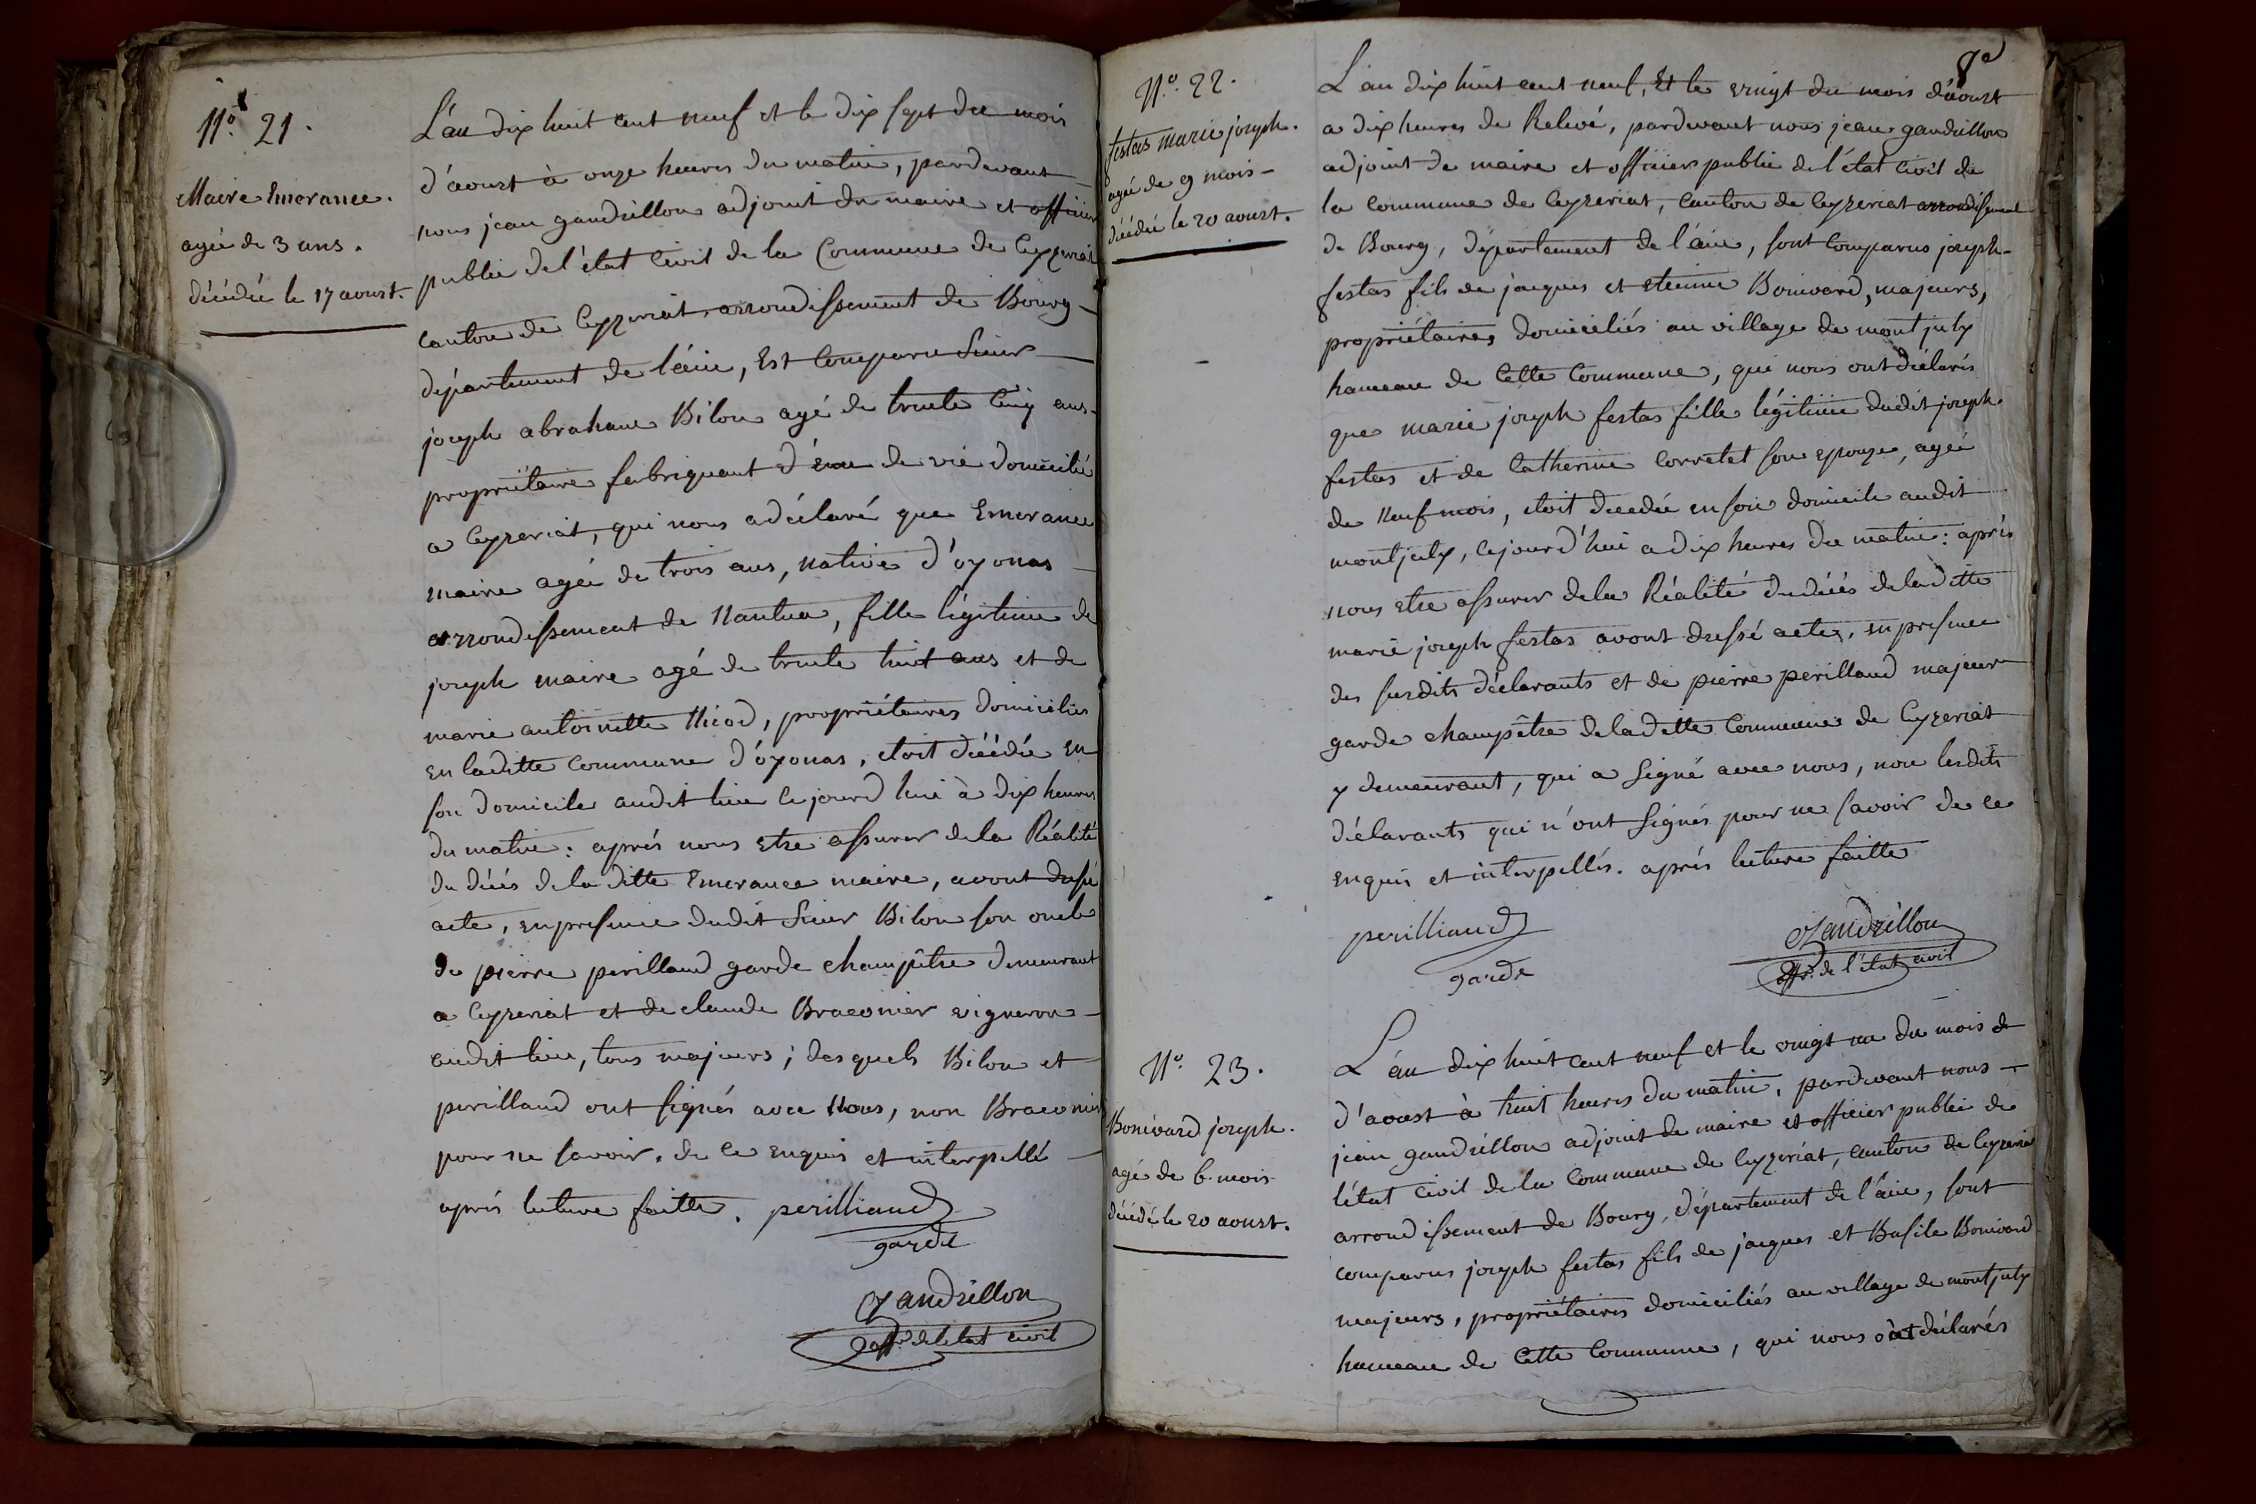 N.o 21.
Maire Emerance.
agée de 3 ans.
décédée le 17 aoust.
L'an dix huit cent neuf et le dix sept du mois
d'aoust à onze heures du matin, pardevant
nous jean gandrillon adjoint du maire et officier
public de l'état civil de la Commune de Ceyzeriat
canton de Ceyzeriat arrondissement de Bourg
département de l'ain, Est Comparu Sieur
joseph abraham Bilon agé de trente cinq ans
propriétaire fabriquant d'eau de vie domicilié
a Ceyzeriat, qui nous a déclaré que Emerance
maire agée de trois ans, native d'oyonas
arrondissement de Nantua, fille légitime de
joseph maire agé de trente huit ans et de
marie antoinette Nicod, propriétaires domiciliés
en laditte commune d'oyonas, etoit décédée en
son domicile audit lieu cejourd'hui à dix heures
du matin: après nous etre assurer de la Réalité
du décés de la ditte Emerance maire, avont dressé
acte, en presence dudit Sieur Bilon son oncle
de pierre perillaud garde champêtre demeurant
a Ceyzeriat et de claude Braconier vigneron
audit lieu, tous majeurs; desquels Bilon et
perillaud ont signés avec Nous, non Braconier
pour ne savoir, de ce enquis et interpellé
après lecture faitte. perilliaud
garde
Gandrillon
off. de l'etat civil
8e
N.o 22.
festas marie joseph.
agée de 9 mois
décédée le 20 aoust.
L'an dix huit cent neuf, Et le vingt du mois d'aoust
a dix heures de Relevé, pardevant nous jean gandrillon
adjoint de maire et officier public de l'état civil de
la commune de Ceyzeriat, Canton de Ceyzeriat arrondissement
de Bourg, département de l'ain, sont Comparus joseph
festas fils de jacques et etienne Bonivard, majeurs,
propriétaires domiciliés au village de montjuly
hameau de Cette Commune, qui nous ont déclarés
que marie joseph festas fille légitime dudit joseph
festas et de Catherine Corretet son epouze, agée
de Neuf mois, etoit decedée en son domicile audit
montjuly, cejourd'hui a dix heures du matin: après
nous etre assurer de la Réalité du décés de la ditte
marie joseph festas avont dressé acte, en presence
des susdits déclarants et de pierre perillaud majeur
garde champêtre de la ditte Commune de Ceyzeriat
y demeurant, qui a signé avec nous, non lesdits
déclarants qui n'ont signés pour ne savoir de ce
enquis et interpellés. après lecture faitte
perilliaud
garde
Gandrillon
off. de l'état civil
N.o 23.
Bonivard joseph.
agé de 6 mois
décédé le 20 aoust.
L'an dix huit cent neuf et le vingt un du mois de
d'aoust à huit heures du matin, pardevant nous
jean gandrillon adjoint de maire et officier public de
l'état civil de la Commune de Ceyzeriat, canton de Ceyzeriat
arrondissement de Bourg, département de l'ain, sont
comparus joseph festas fils de jacques et Basile Bonivard
majeurs, propriétaires domiciliés au village de montjuly
hameau de Cette Commune, qui nous ont déclarés